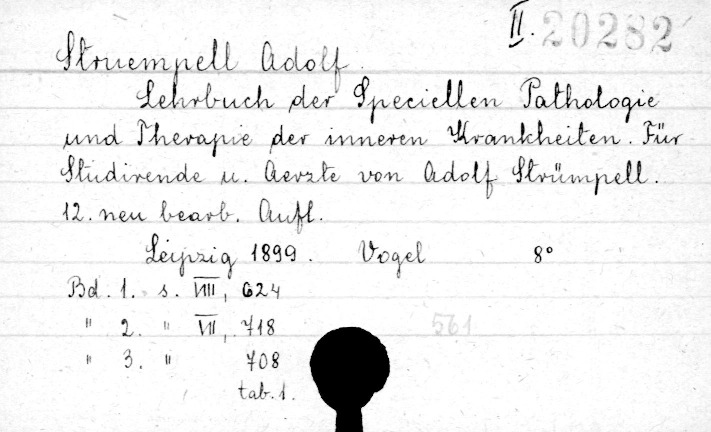 II. 20282
Struempell Adolf.
Lehrbuch der Speciellen Pathologie
und Therapie der inneren Krankheiten. Für
Studirende u. Aerzte von Adolf Strümpell.
12. neu bearb. Aufl.
Leipzig 1899. Vogel 8°
Bd. 1. s. VIII, 624
" 2. " VII, 718 561
" 3. " 708
tab. 1.